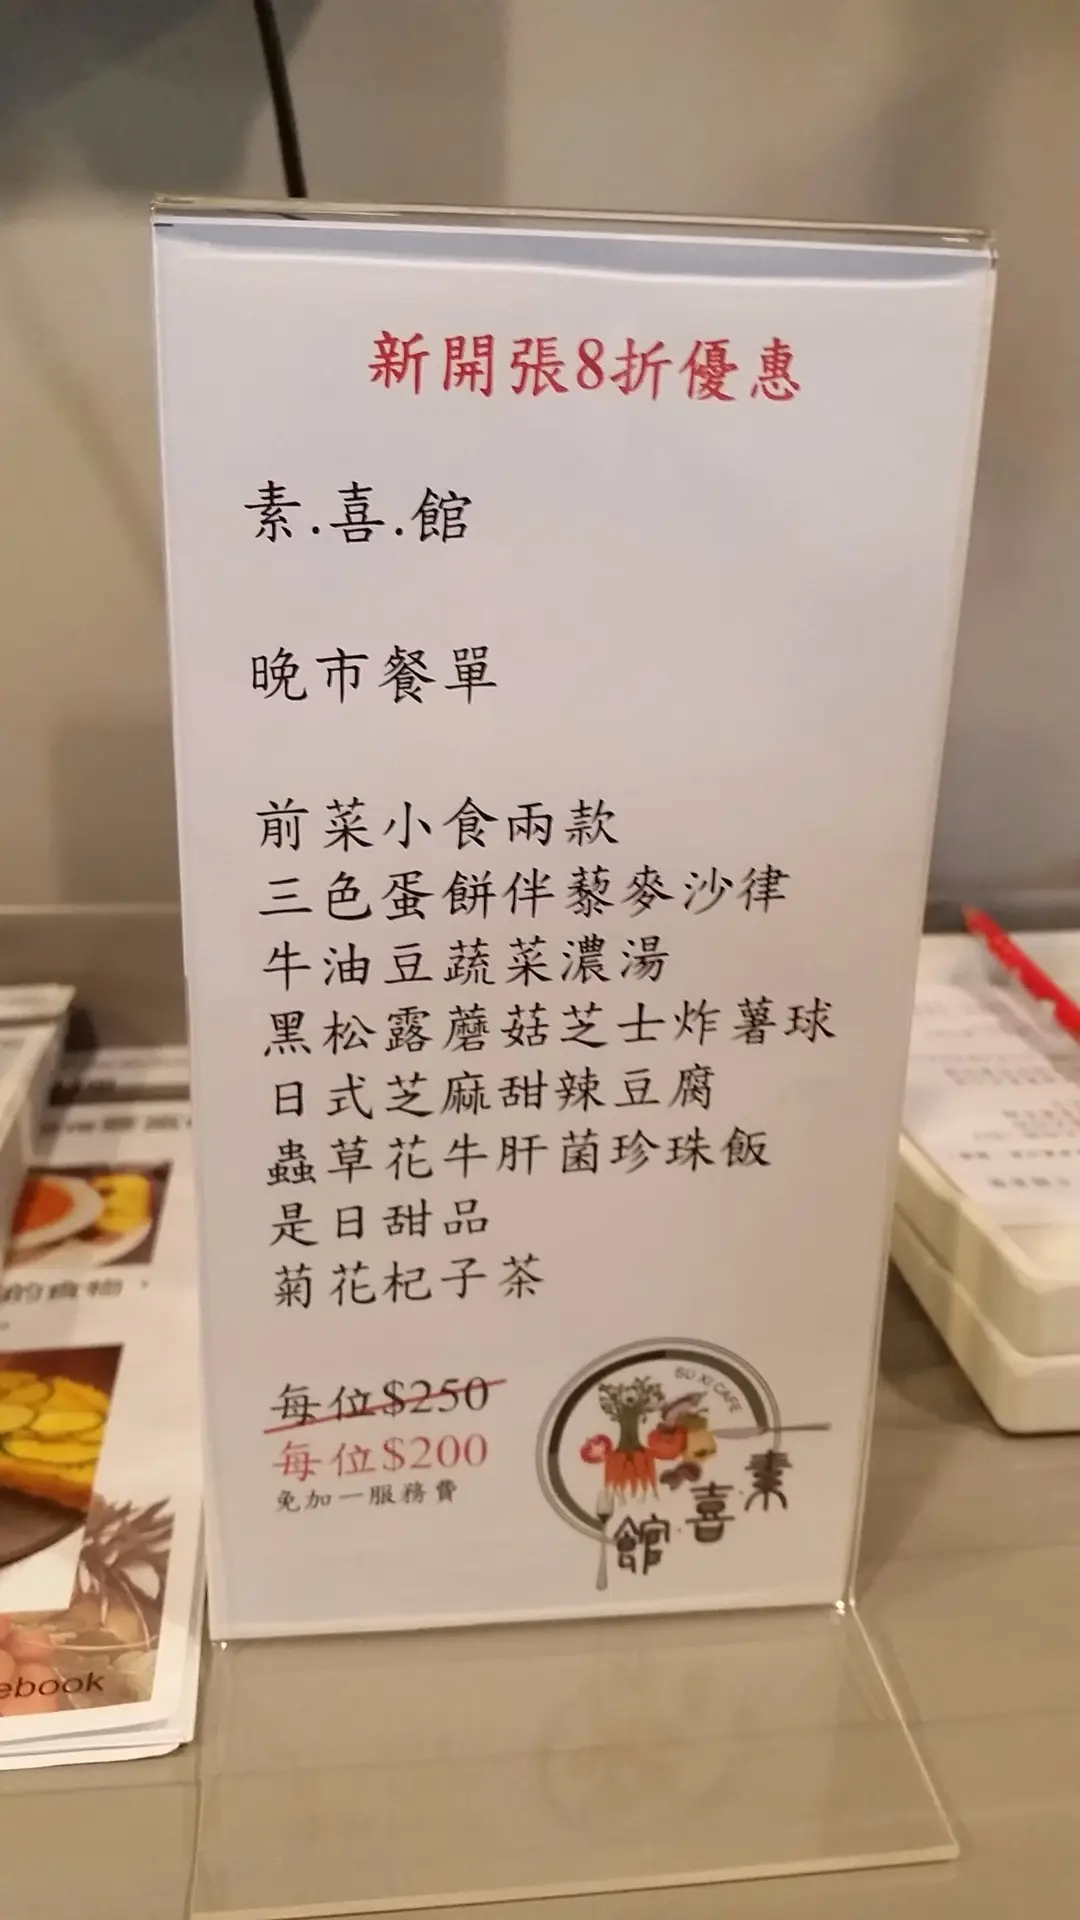 新開張8折優惠
素.喜.館
晚市餐單
前菜小食兩款
三色蛋餅伴藜麥沙律
牛油豆蔬菜濃湯
黑松露蘑菇芝士炸薯球
日式芝麻甜辣豆腐
蟲草花牛肝菌珍珠飯
是日甜品
菊花杞子茶
每位$250
每位$200
免加一服務費
SU XI CAFE
素.喜.館
的食物，
ebook